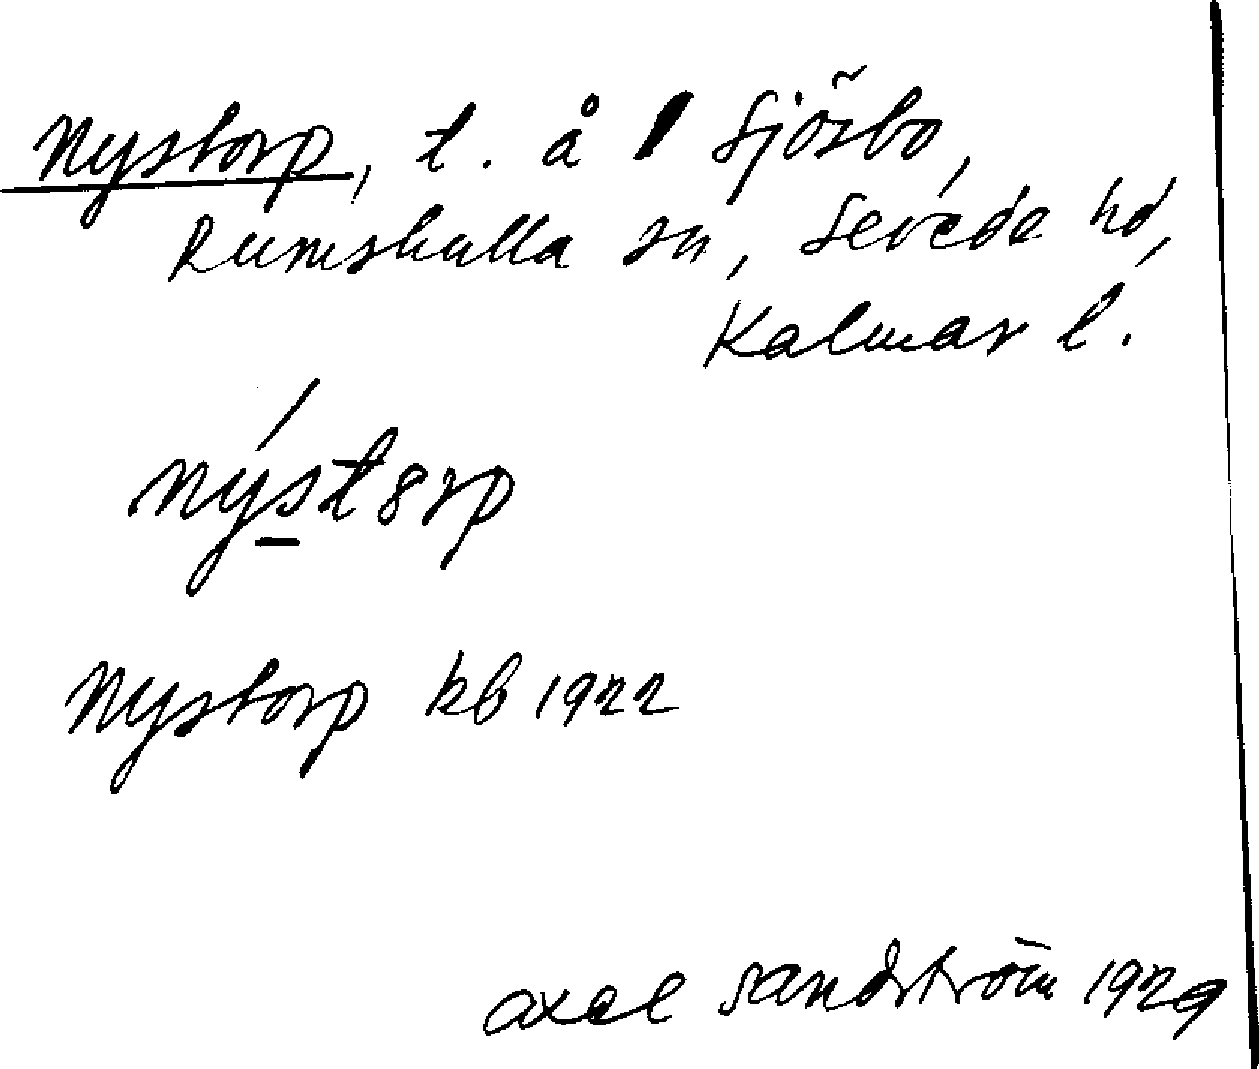 Nystorp, t. å Sjöröbo,
Rumskulla sn, Sevede hd,
Kalmar l.
nýstorp
Nystorp kb 1922
Axel Sandström 1929